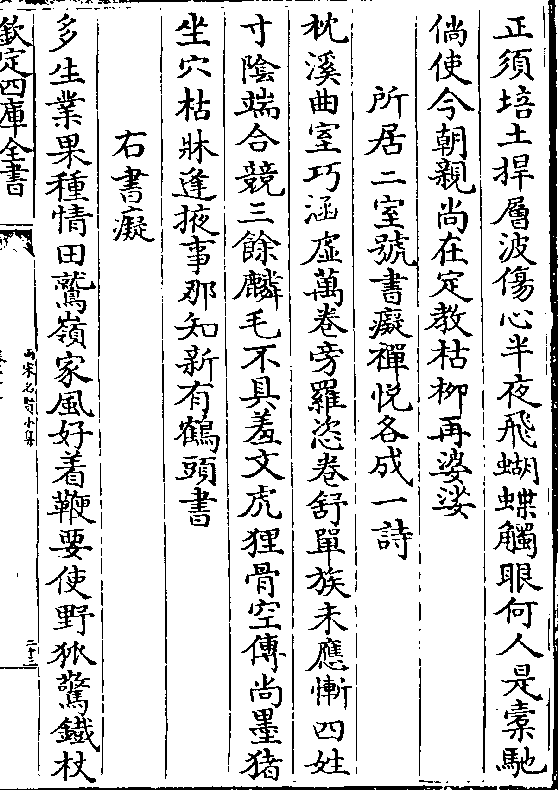 正須培土捍層波傷心半夜飛蝴蝶觸眼何人是橐馳
倘使今朝親尚在定教枯柳再婆娑
所居二室號書癡禪悦各成一詩
枕溪曲室巧涵虛萬卷旁羅恣卷舒單族未應慚四姓
寸陰端合競三餘麟毛不具羞文虎狸骨空傳尚墨猪
坐穴枯牀逢掖事那知新有鶴頭書
右書癡
多生業果種情田鷲嶺家風好着鞭要使野狐驚鐵杖
欽定四庫全書
兩宋名賢小集
二十三